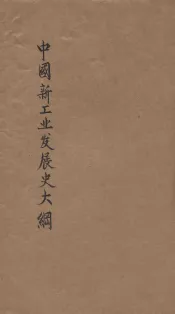 中國新工业发展史大綱